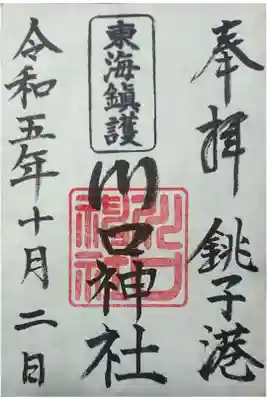 奉拝 銚子港
東海鎮護
川口神社
川口神社
令和五年十月二日